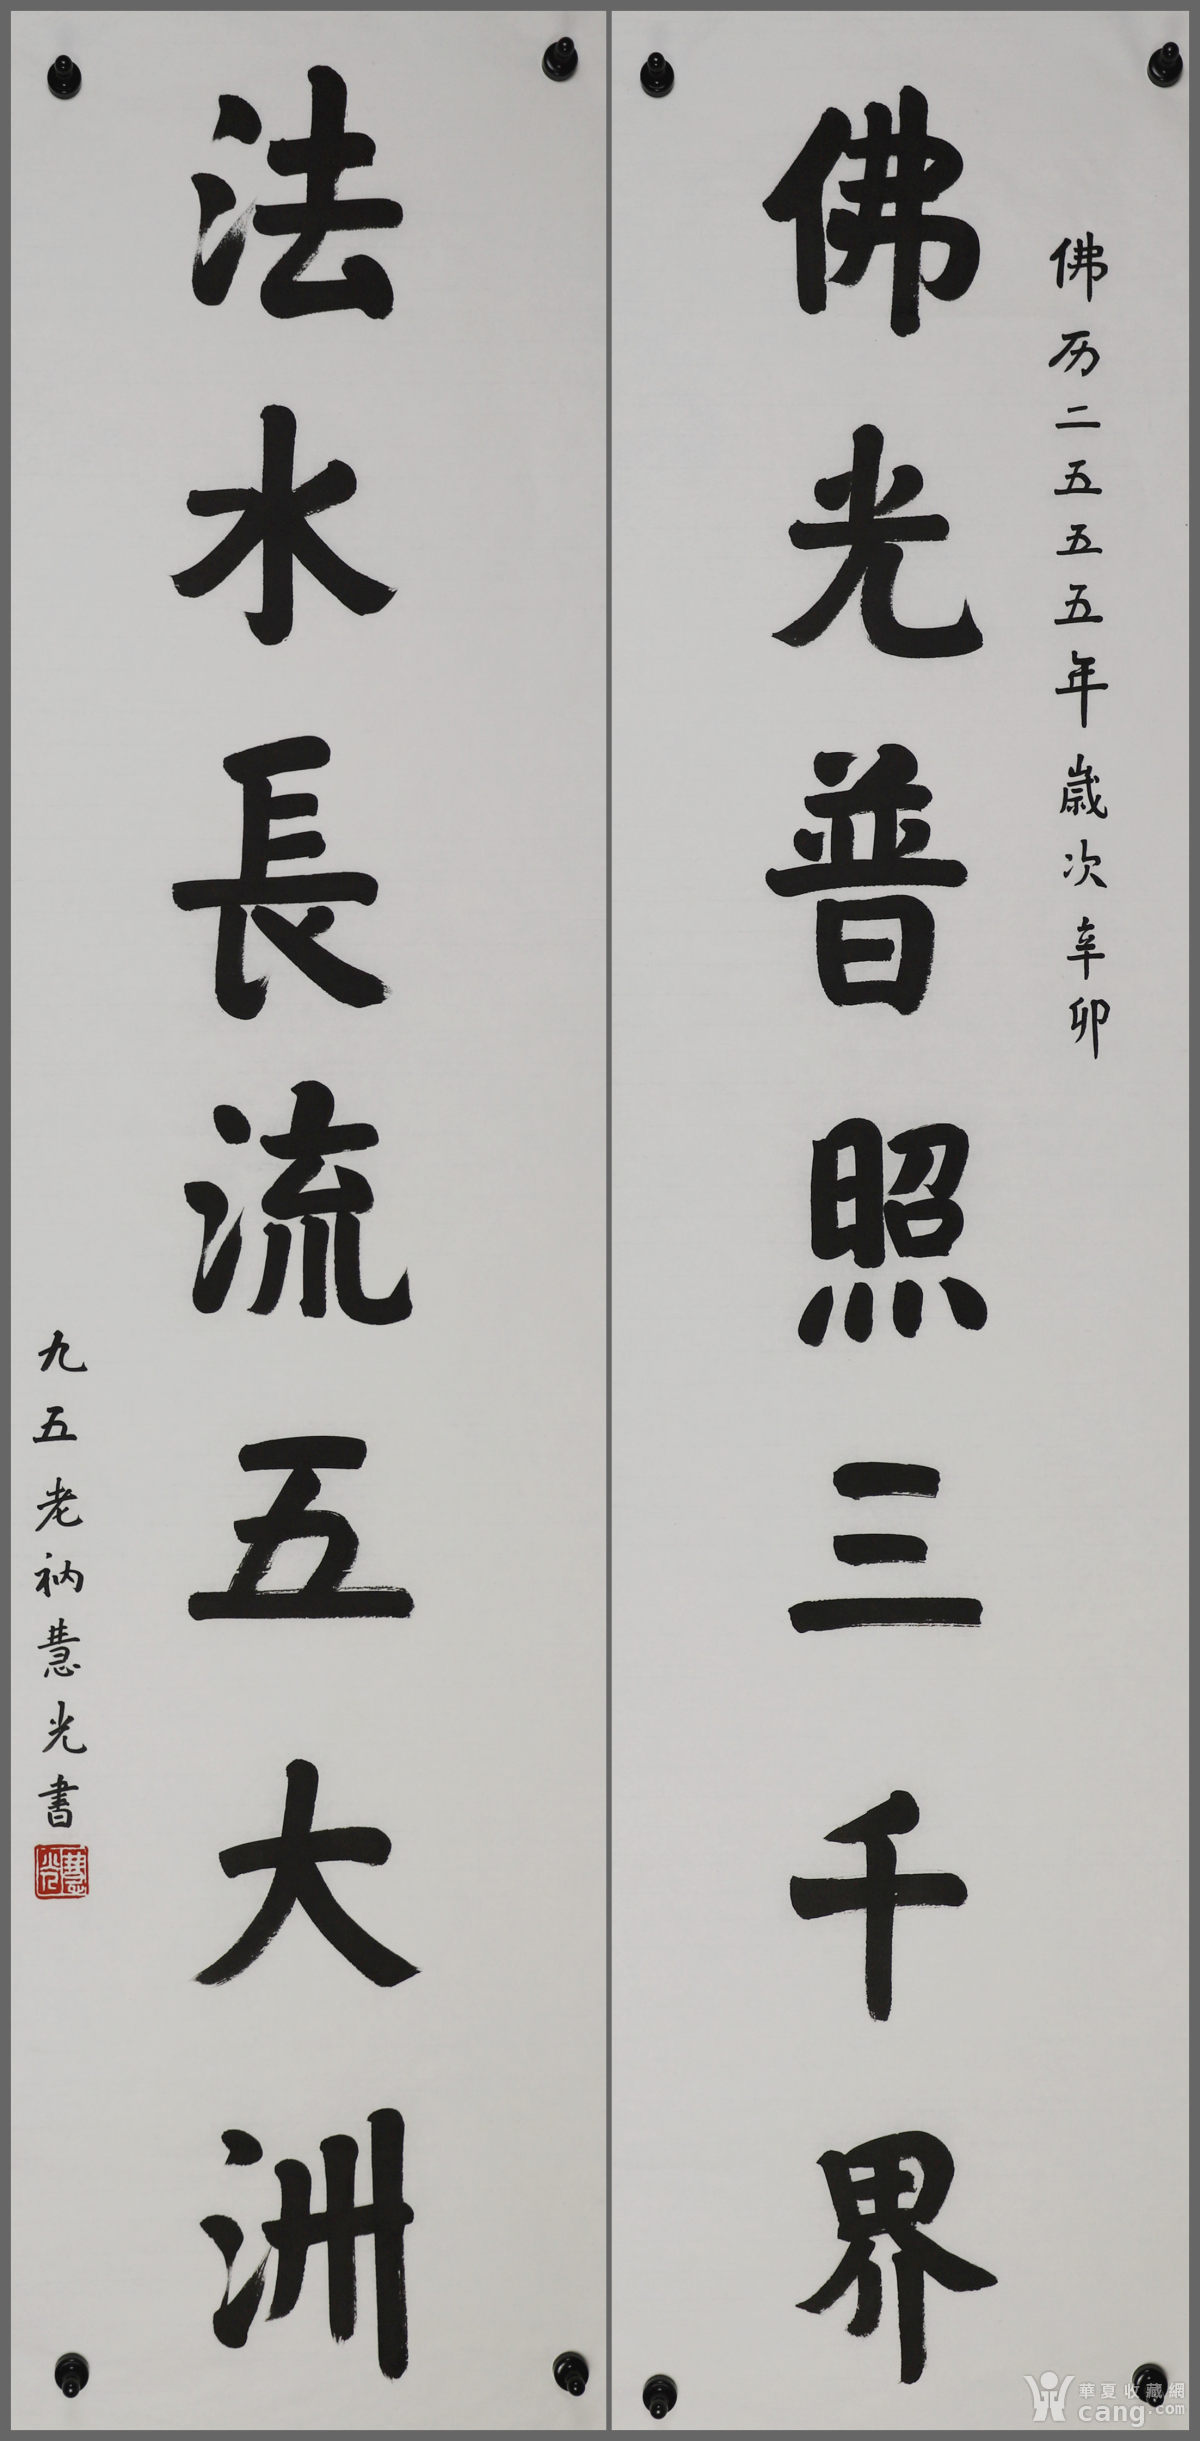 佛历二五五五年歲次辛卯
佛光普照三千界
法水長流五大洲
九五老衲慧光書
慧光
華夏收藏網
cang.com